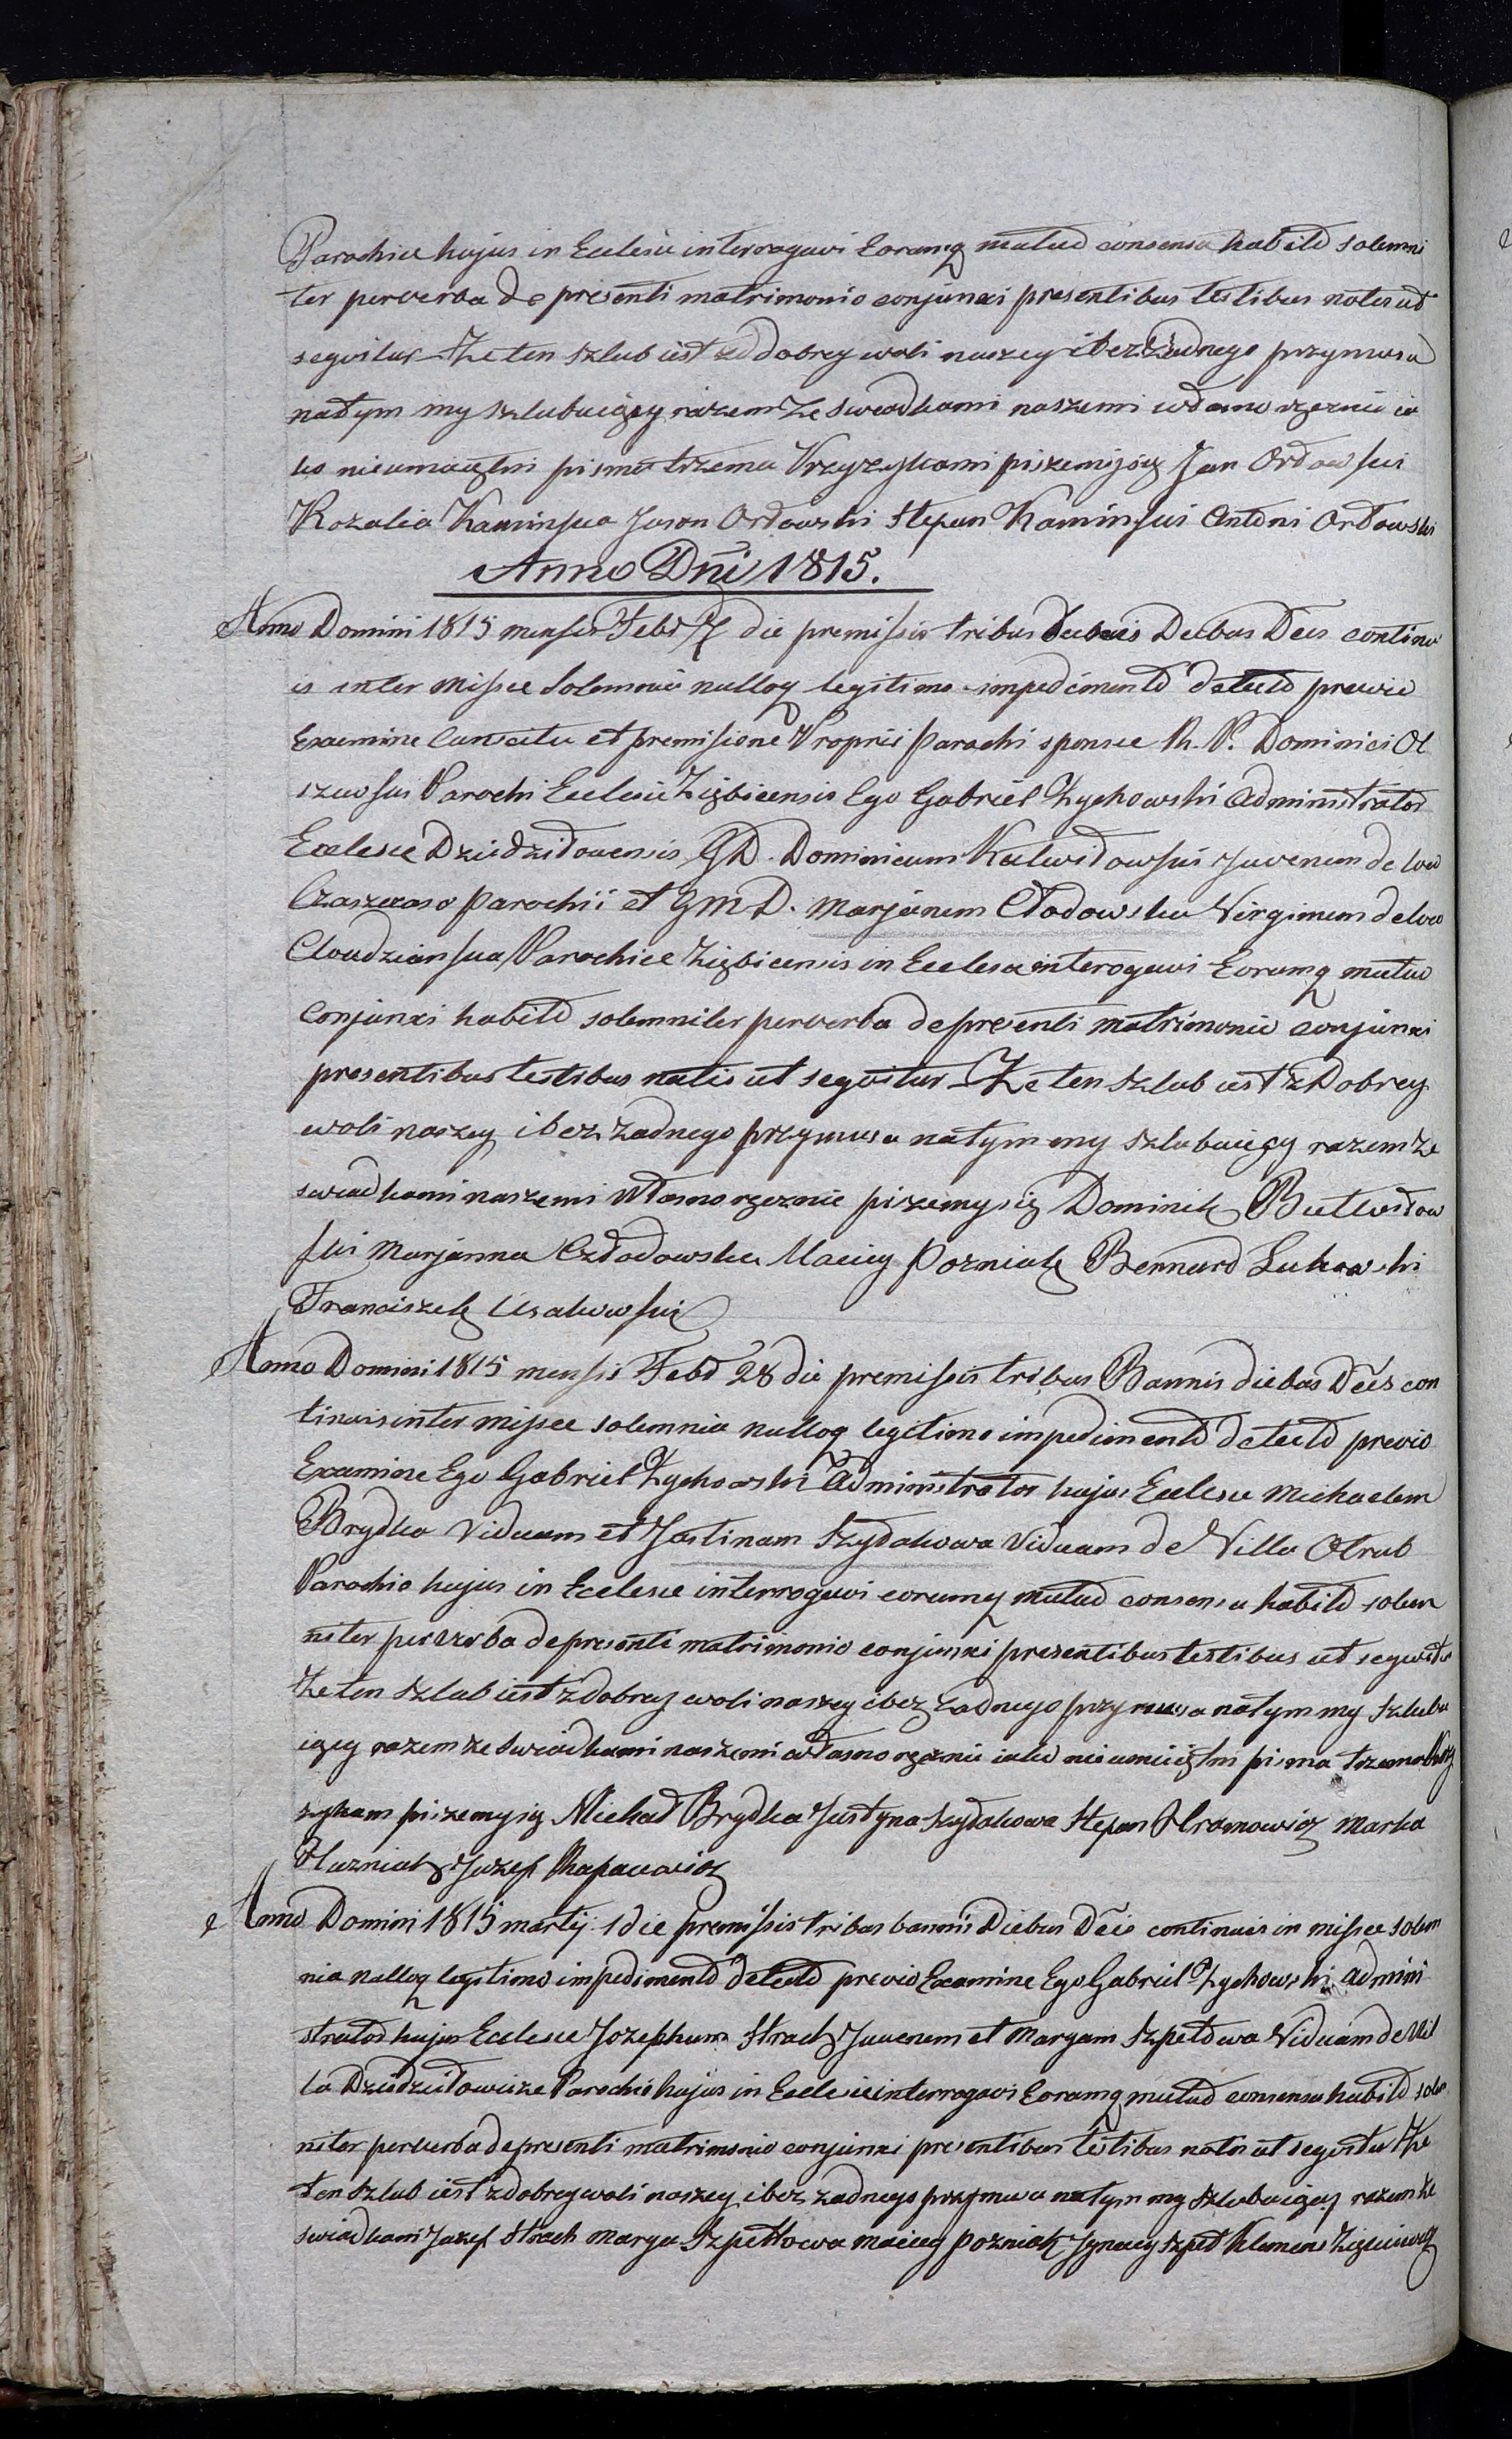 Parochiæ hujus in Ecclesiæ interrogavi Eorumq mutuo consensu habito solemni
ter per verba de presenti matrimonio conjunxi presentibus testibus notis ut
segvitur Że ten szlub iest z dobrey woli naszey i bez żadnego przymusu
natym my szlubuięcy razem ze swiadkami naszemi własno ręcznie ia
ko nieumięętni pisma trzema Krzyżykami piszemy się Jan Orłowski
Rozalia Kaminska Jason Orłowski Stepan Kaminski Antoni Orłowski
Anno Dni 1815.
Anno Domini 1815 mensis Febr 7 die premissis tribus Diebus Dēis continu
is inter Missæ Solemnia nulloq legitimo impedimento detecto previo
Examine et premissione Proprii Parochi sponsæ R. P. Dominici Ol
szewski Parochi Ecclesiæ Ziębicensis Ego Gabriel Zychowski Administrator
Ecclesiæ Dziedziłovensis GD. Dominicum Juvenem de loco
Parochii et GMD. Marjanem Cłodowska Virginem de loco
Parochiæ Ziębicensis in Ecclesia interogavi Eorumq mutuo
Conjunxi habito solemniter per verba de presenti matrimonio conjunxi
presentibus testibus natis ut segvitur Że ten szlub iest z Dobrey
woli naszey i bez żadnego przymusu natym my szlubuięcy razem ze
swiadkami naszemi Własno ręcznie piszemy się Dominik Butwiłow
ski Marjanna Człodowska Maciey Pozniak Bernard Lukowski
Franciszek
Anno Domini 1815 mensis Febr 28 die premissis tribus Bannis diebus Dēis con
tinuis inter missæ solemnia nulloq legitimo impedimento detecto previo
Examine Ego Gabriel Zychowski Administrator hujus Ecclesiæ Michaelem
Brydka Viduum et Justinam Szydłakowa Viduam de Villa Otrub
Parochia hujus in Ecclesiæ interrogavi eorumq mutuo consensu habito solem
niter per verba de presenti matrimonio conjunxi presentibus testibus ut segvitur
Że ten szlub iest z dobrey woli naszey i bez żadnego przymusu natym my szlubu
ięcy razem ze swiadkami naszemi własno ręcznie iako nieumieiętni pisma trzema Krzy
zykam piszemy się Michał Brydka Justyna Szydłakowa Stepan Hromowicz Marko
Huzniak Jozef Rapacewicz
Anno Domini 1815 martij 1 die premissis tribus bannis Diebus Dēis continuis in missæ solem
nia nulloq legitimo impedimento detecto previo Examine Ego Gabriel Zychowski Admini
strator hujus Ecclesiæ Jozephum Strach Juvenem et Maryam Szpetowa Viduam de Vil
la Dziedziłowicze Parochio hujus in Ecclesiæ interrogavi Eorumq mutuo consensu habito sole
niter per verba de presenti matrimonio conjunxi presentibus testibus notis ut segvitur Że
ten szlub iest z dobrey woli naszey i bez żadnego przymusu natym my szlubuięcy razem ze
swiadkami Jozef Strach Marya Szpetłowa Maciey Pozniak Jgnacy Szpet Klemens